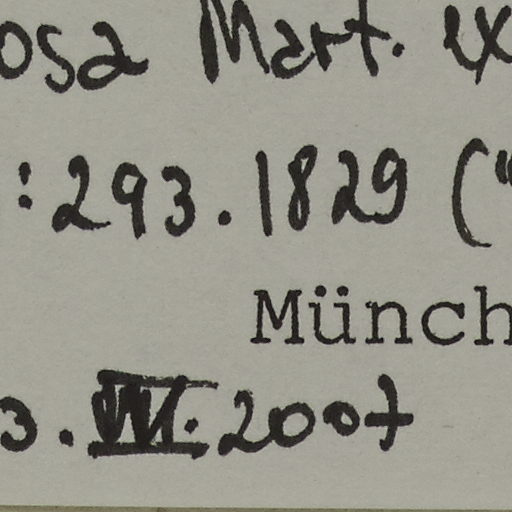 osa Mart. ex
: 293.1829 ("
Münch
3. 2007